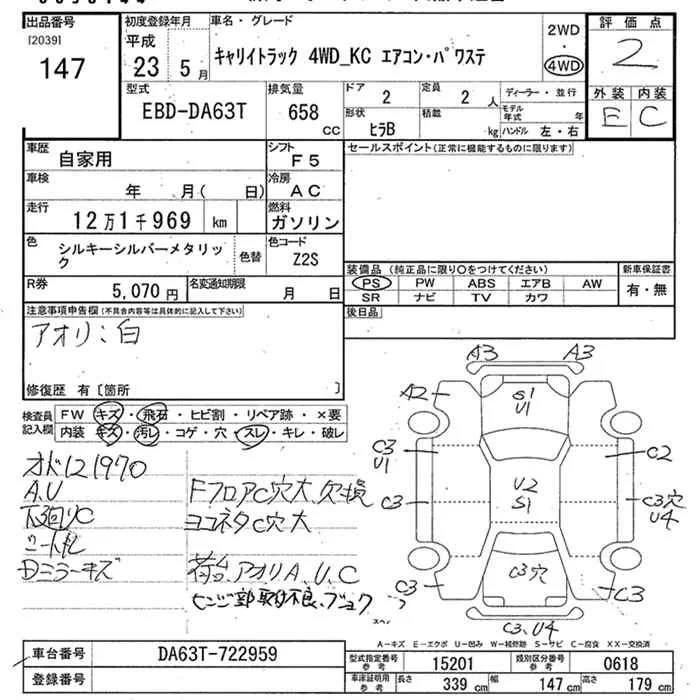 出品番号
[2039]
147
初度登録年月
平成
23 5月
車名・グレード
キャリイトラック 4WD_KC エアコン・パワステ
2WD
・
4WD
評価点
2
外装 内装
E C
型式
EBD-DA63T
排気量
658 CC
ドア 2
定員 2 人
ディーラー・並行
形状 ヒラB
積載 kg
モデル年式 年
ハンドル 左・右
車歴 自家用
シフト F5
セールスポイント(正常に機能するものに限ります)
車検 年 月( 日)
冷房 AC
走行 12万1千969 km
燃料 ガソリン
色 シルキーシルバーメタリック
色替
色コード Z2S
装備品 (純正品に限り○をつけてください)
新車保証書
PS PW ABS エアB AW
有・無
SR ナビ TV カワ
R券 5,070 円
名変通知期限 月 日
後日品
注意事項申告欄(不具合内容等は具体的に記入して下さい)
アオリ:白
修復歴 有〔箇所 〕
検査員記入欄
FW キズ・飛石・ヒビ割・リペア跡・×要
内装 キズ・汚レ・コゲ・穴・スレ・キレ・破レ
オドL121970
A.U
下廻リC
シート凡
Dミラーキズ
FフロアC穴大、欠損
ヨコネタC穴大
荷台、アオリA、U、C
ヒンジ部取付不良、ブヨウ
A3 A3
A2
S1
U1
C3
U1
C2
C3
U2
S1
C3穴
U4
C3穴
C3 C3
C3、U4
A-キズ E-エクボ U-凹み W-補修跡 S-サビ C-腐食 XX-交換済
車台番号 DA63T-722959
型式指定番号 参考 15201
類別区分番号 参考 0618
登録番号
車庫証明用 参考
長さ 339 cm
幅 147 cm
高さ 179 cm